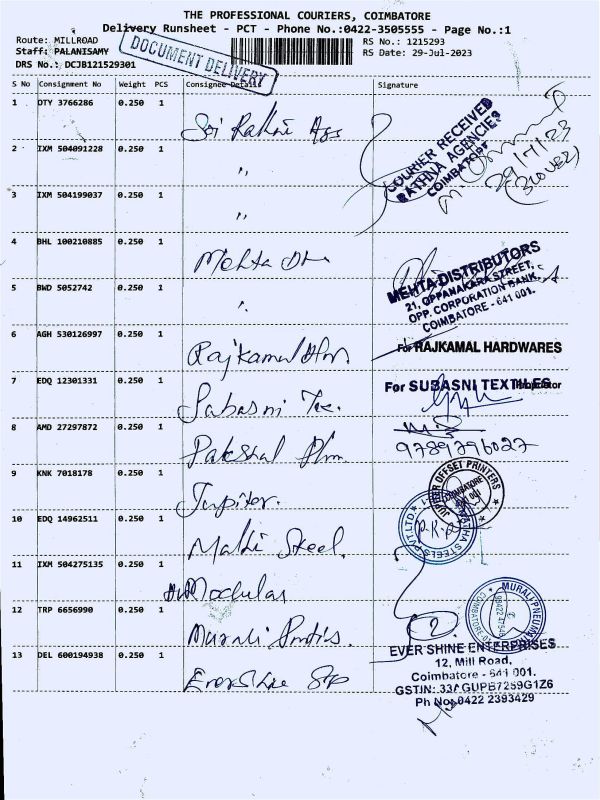 THE PROFESSIONAL COURIERS, COIMBATORE
Delivery Runsheet - PCT - Phone No.:0422-3505555 - Page No.:1
Route: MILLROAD
Staff: PALANISAMY
DRS No.: DCJB121529301
DOCUMENT DELIVERY
RS No.: 1215293
RS Date: 29-Jul-2023
S No Consignment No Weight PCS Consignee Details Signature
1 DTY 3766286 0.250 1
COURIER RECEIVED
RATHNA AGENCIES
COIMBATORE
29/7/23
2 IXM 504091228 0.250 1 "
3 IXM 504199037 0.250 1 "
4 BHL 100210885 0.250 1 Mehta
MEHTA DISTRIBUTORS
21, OPPANAKARA STREET,
OPP. CORPORATION BANK,
COIMBATORE - 641 001.
5 BWD 5052742 0.250 1 "
6 AGH 530126997 0.250 1 Rajkamal
For RAJKAMAL HARDWARES
Proprietor
7 EDQ 12301331 0.250 1 Sabasni Tex.
For SUBASNI TEXTILES
8 AMD 27297872 0.250 1
9789796027
9 KNK 7018178 0.250 1 Jupiter.
JUPITER OFFSET PRINTERS
COIMBATORE
641 001
10 EDQ 14962511 0.250 1 Steel.
STEELS PVT.LTD.
11 IXM 504275135 0.250 1 Modular
12 TRP 6656990 0.250 1 Murali
MURALI PNEUM
13 DEL 600194938 0.250 1
EVER SHINE ENTERPRISES
12, Mill Road,
Coimbatore - 641 001.
GSTIN: 33AGUPB7259G1Z6
Ph No: 0422 2393429